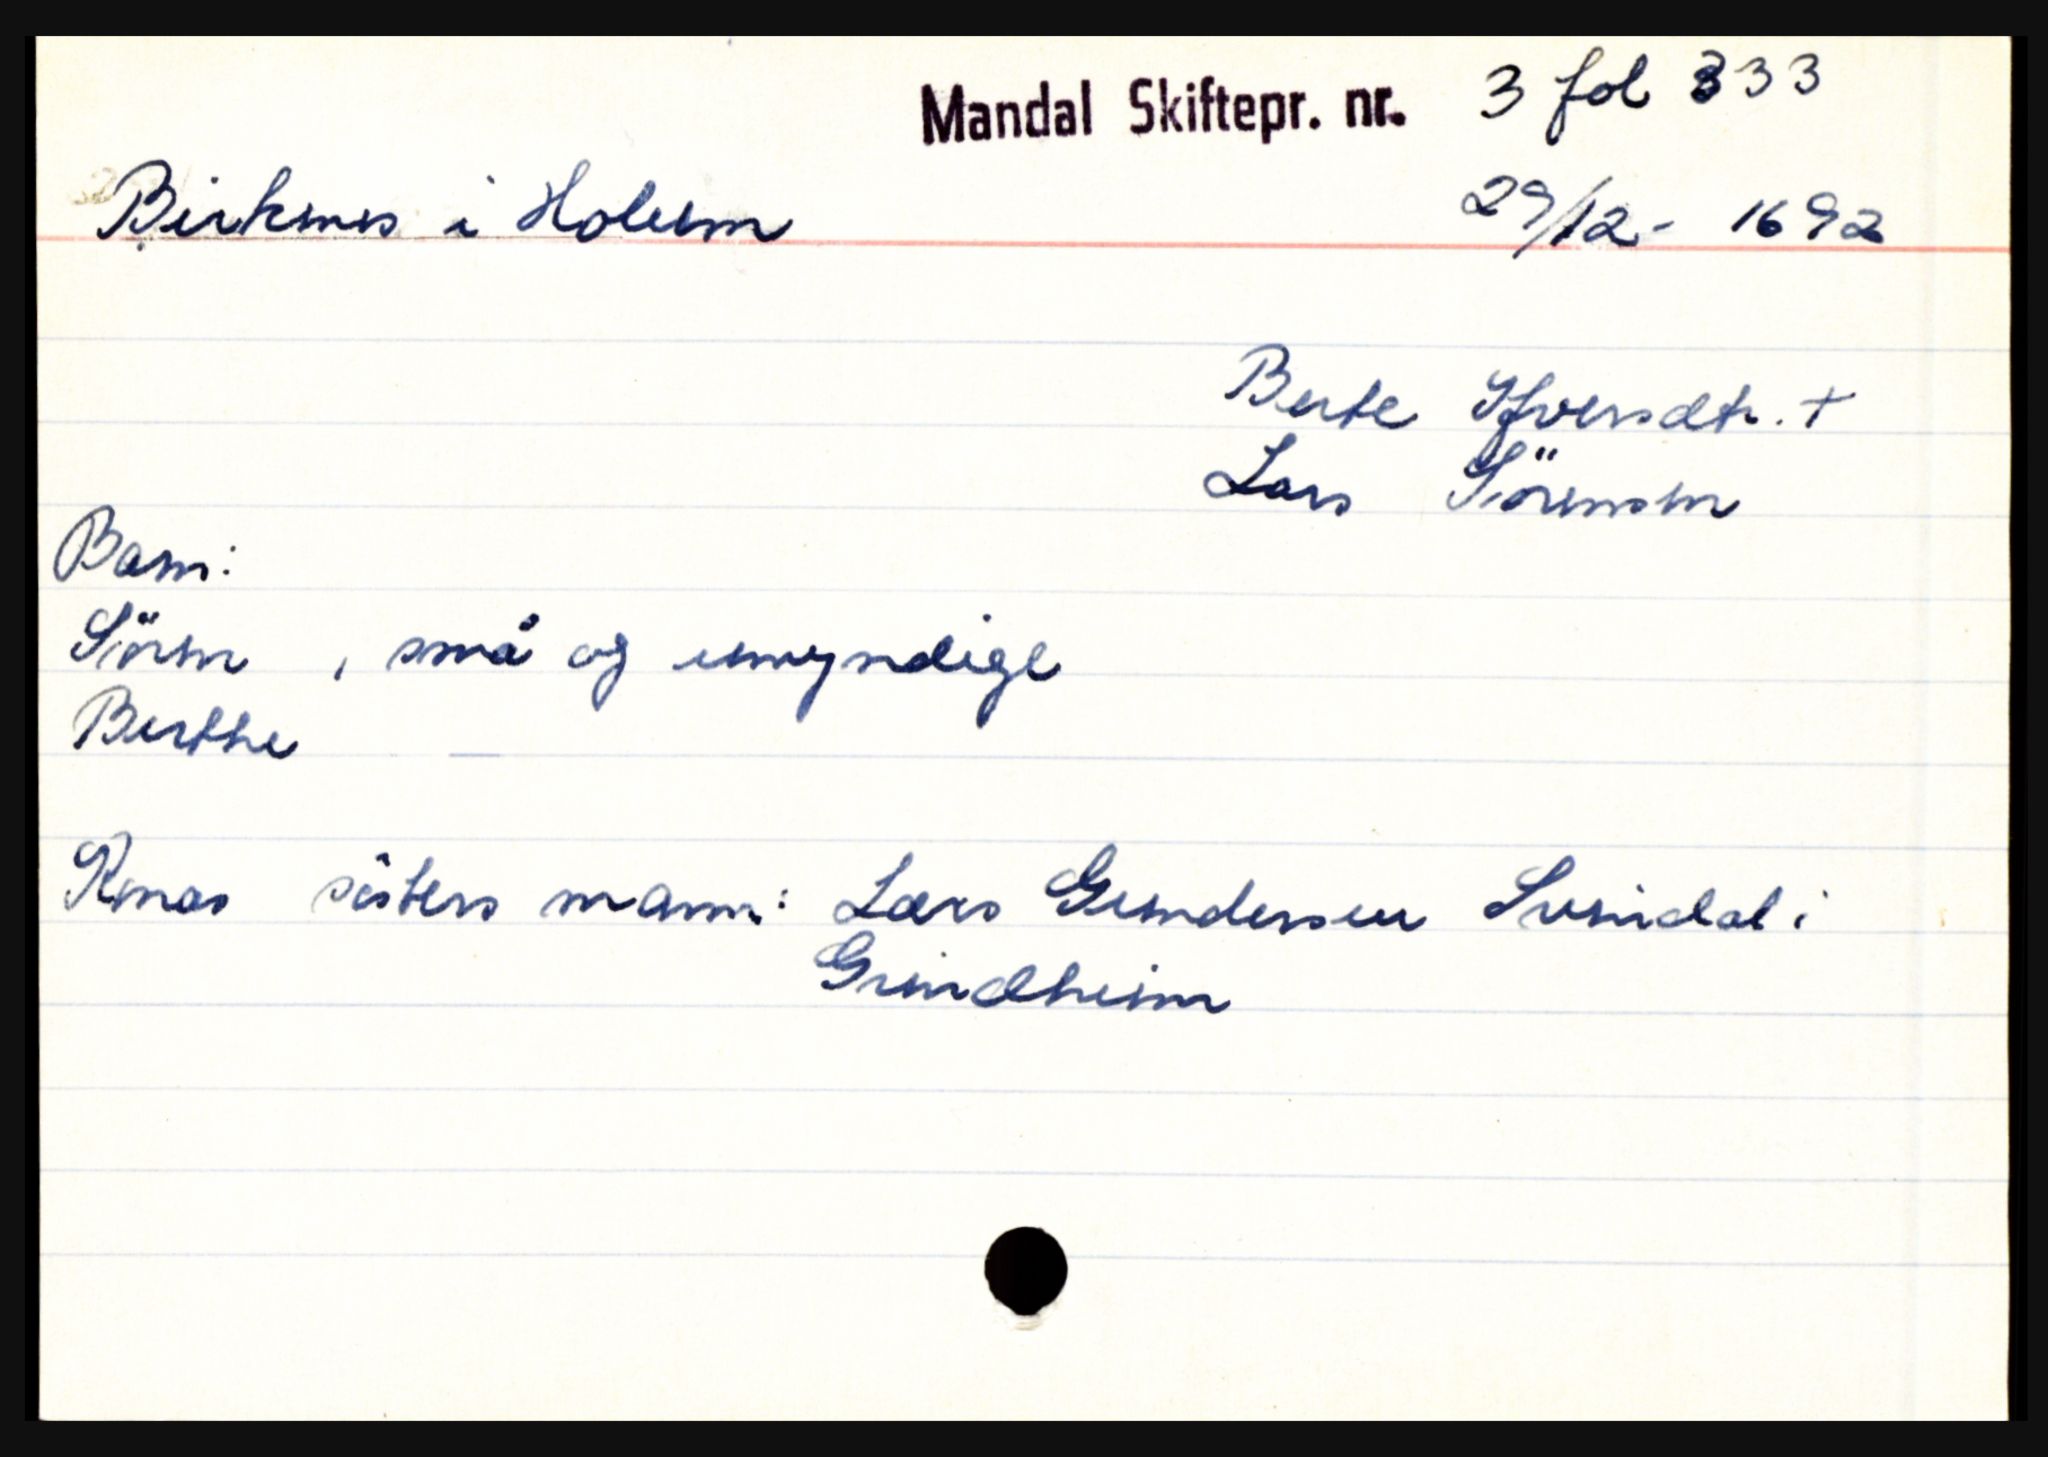 Mandal Skiftepr. nr. 3 fol 333
Birkenes i Holum 29/12- 1692
Berte Ifversdtr. +
Lars Sörensen
Barn:
Sören , små og umyndige
Berthe —
Konas søsters mann: Lars Gundersen Svindal i
Grindheim